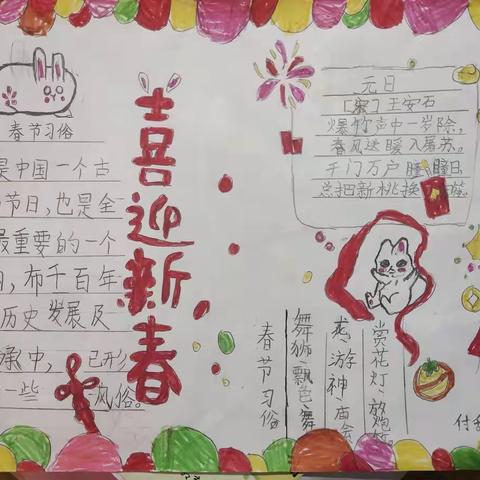 春节习俗
是中国一个古
节日,也是全
最重要的一个
日,布千百年
历史发展及
承中, 已形
一些 风俗。
喜迎新春
元日
[宋]王安石
爆竹声中一岁除,
春风送暖入屠苏。
千门万户曈曈日,
总把新桃换
春节习俗
舞狮、飘色舞
龙、游神庙会
赏花灯、放炮竹
付